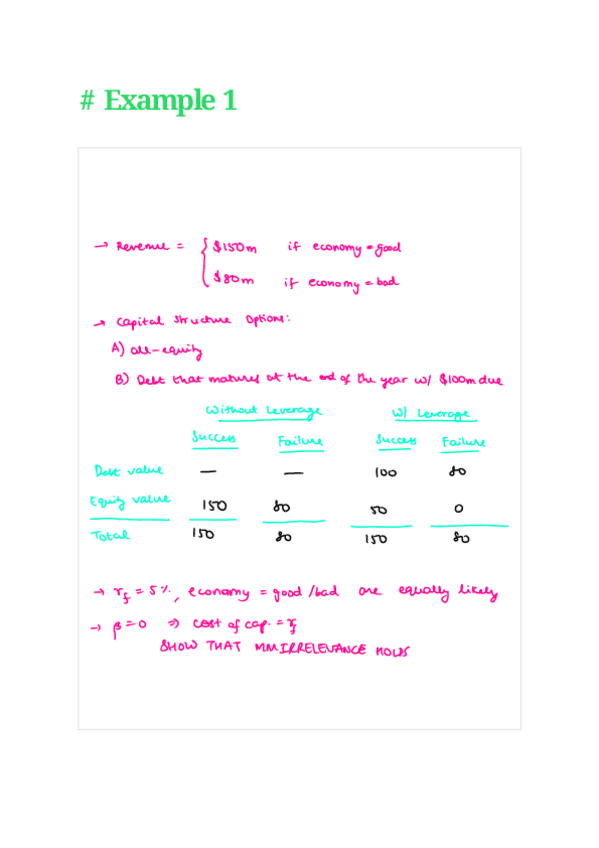 # Example 1
→ Revenue = { $150m if economy = good
$80m if economy = bad
→ Capital Structure Options:
A) all-equity
B) Debt that matures at the end of the year w/ $100m due
Without Leverage W/ Leverage
Success Failure Success Failure
Debt value — — 100 80
Equity value 150 80 50 0
Total 150 80 150 80
→ rf = 5%, economy = good/bad are equally likely
→ β=0 ⇒ cost of cap. = rf
SHOW THAT MM IRRELEVANCE HOLDS